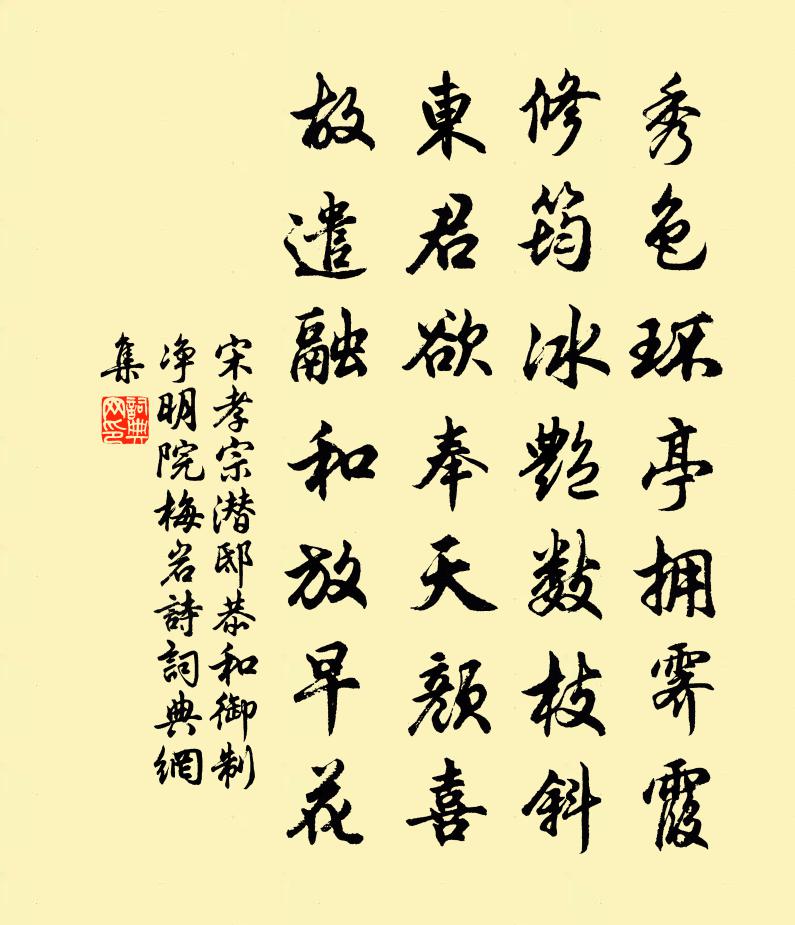 秀色环亭拥霁霞
修筠冰艳数枝斜
東君欲奉天颜喜
故遣融和放早花
宋孝宗潜邸恭和御制
净明院梅岩詩詞典網
集
詞典網印